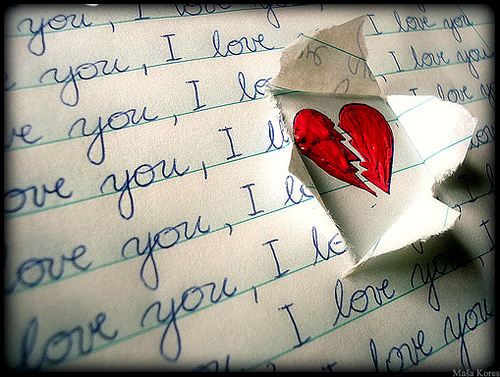 you, I love you,
you, I love I love you
ve you, I lo I love you,
ove you, I l love yo
ove you, I l
ove you, I lo
love you, I love you, I
I love you
Maša Kores